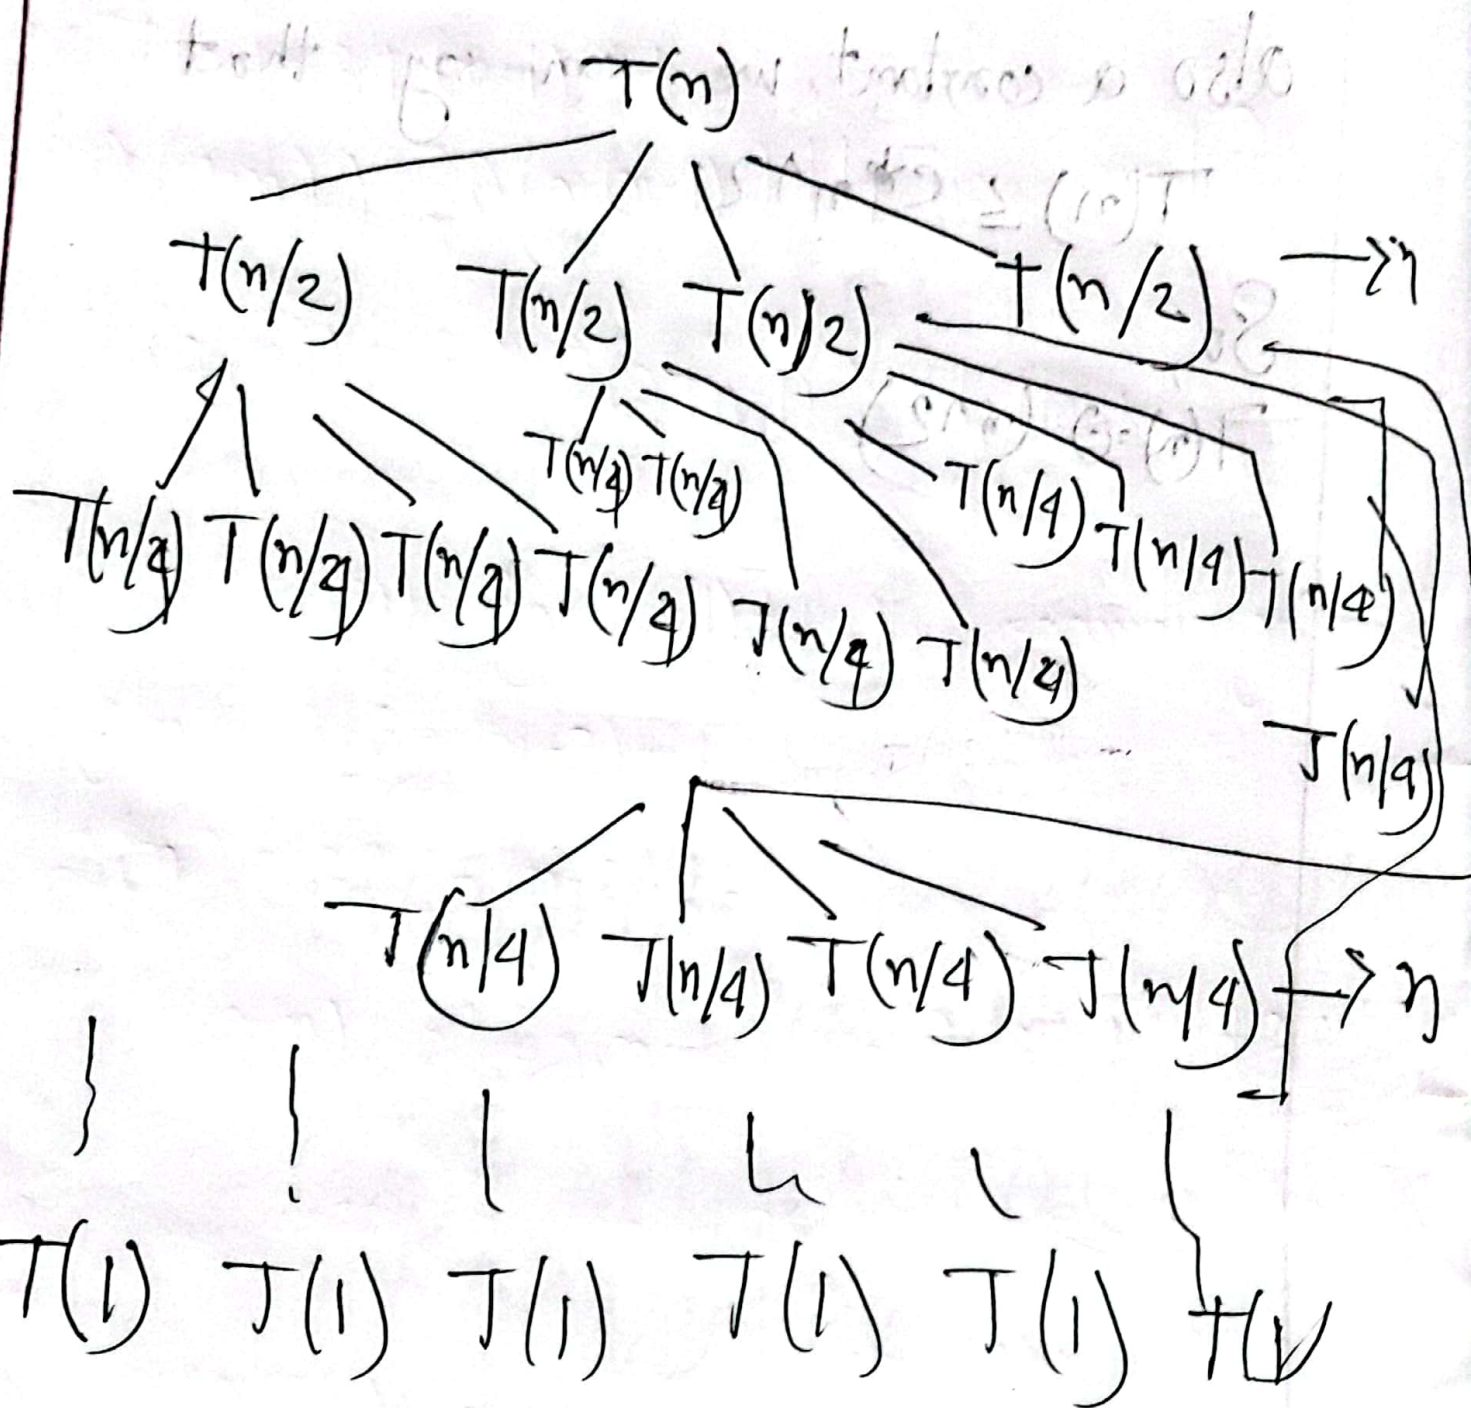 T(n)
T(n/2) T(n/2) T(n/2) T(n/2) → n
T(n/4) T(n/4) T(n/4)
T(n/4) T(n/4) T(n/4) T(n/4) T(n/4) T(n/4)
T(n/4) T(n/4)
T(n/4)
T(n/4) T(n/4) T(n/4) T(n/4) → n
T(1) T(1) T(1) T(1) T(1) T(1)